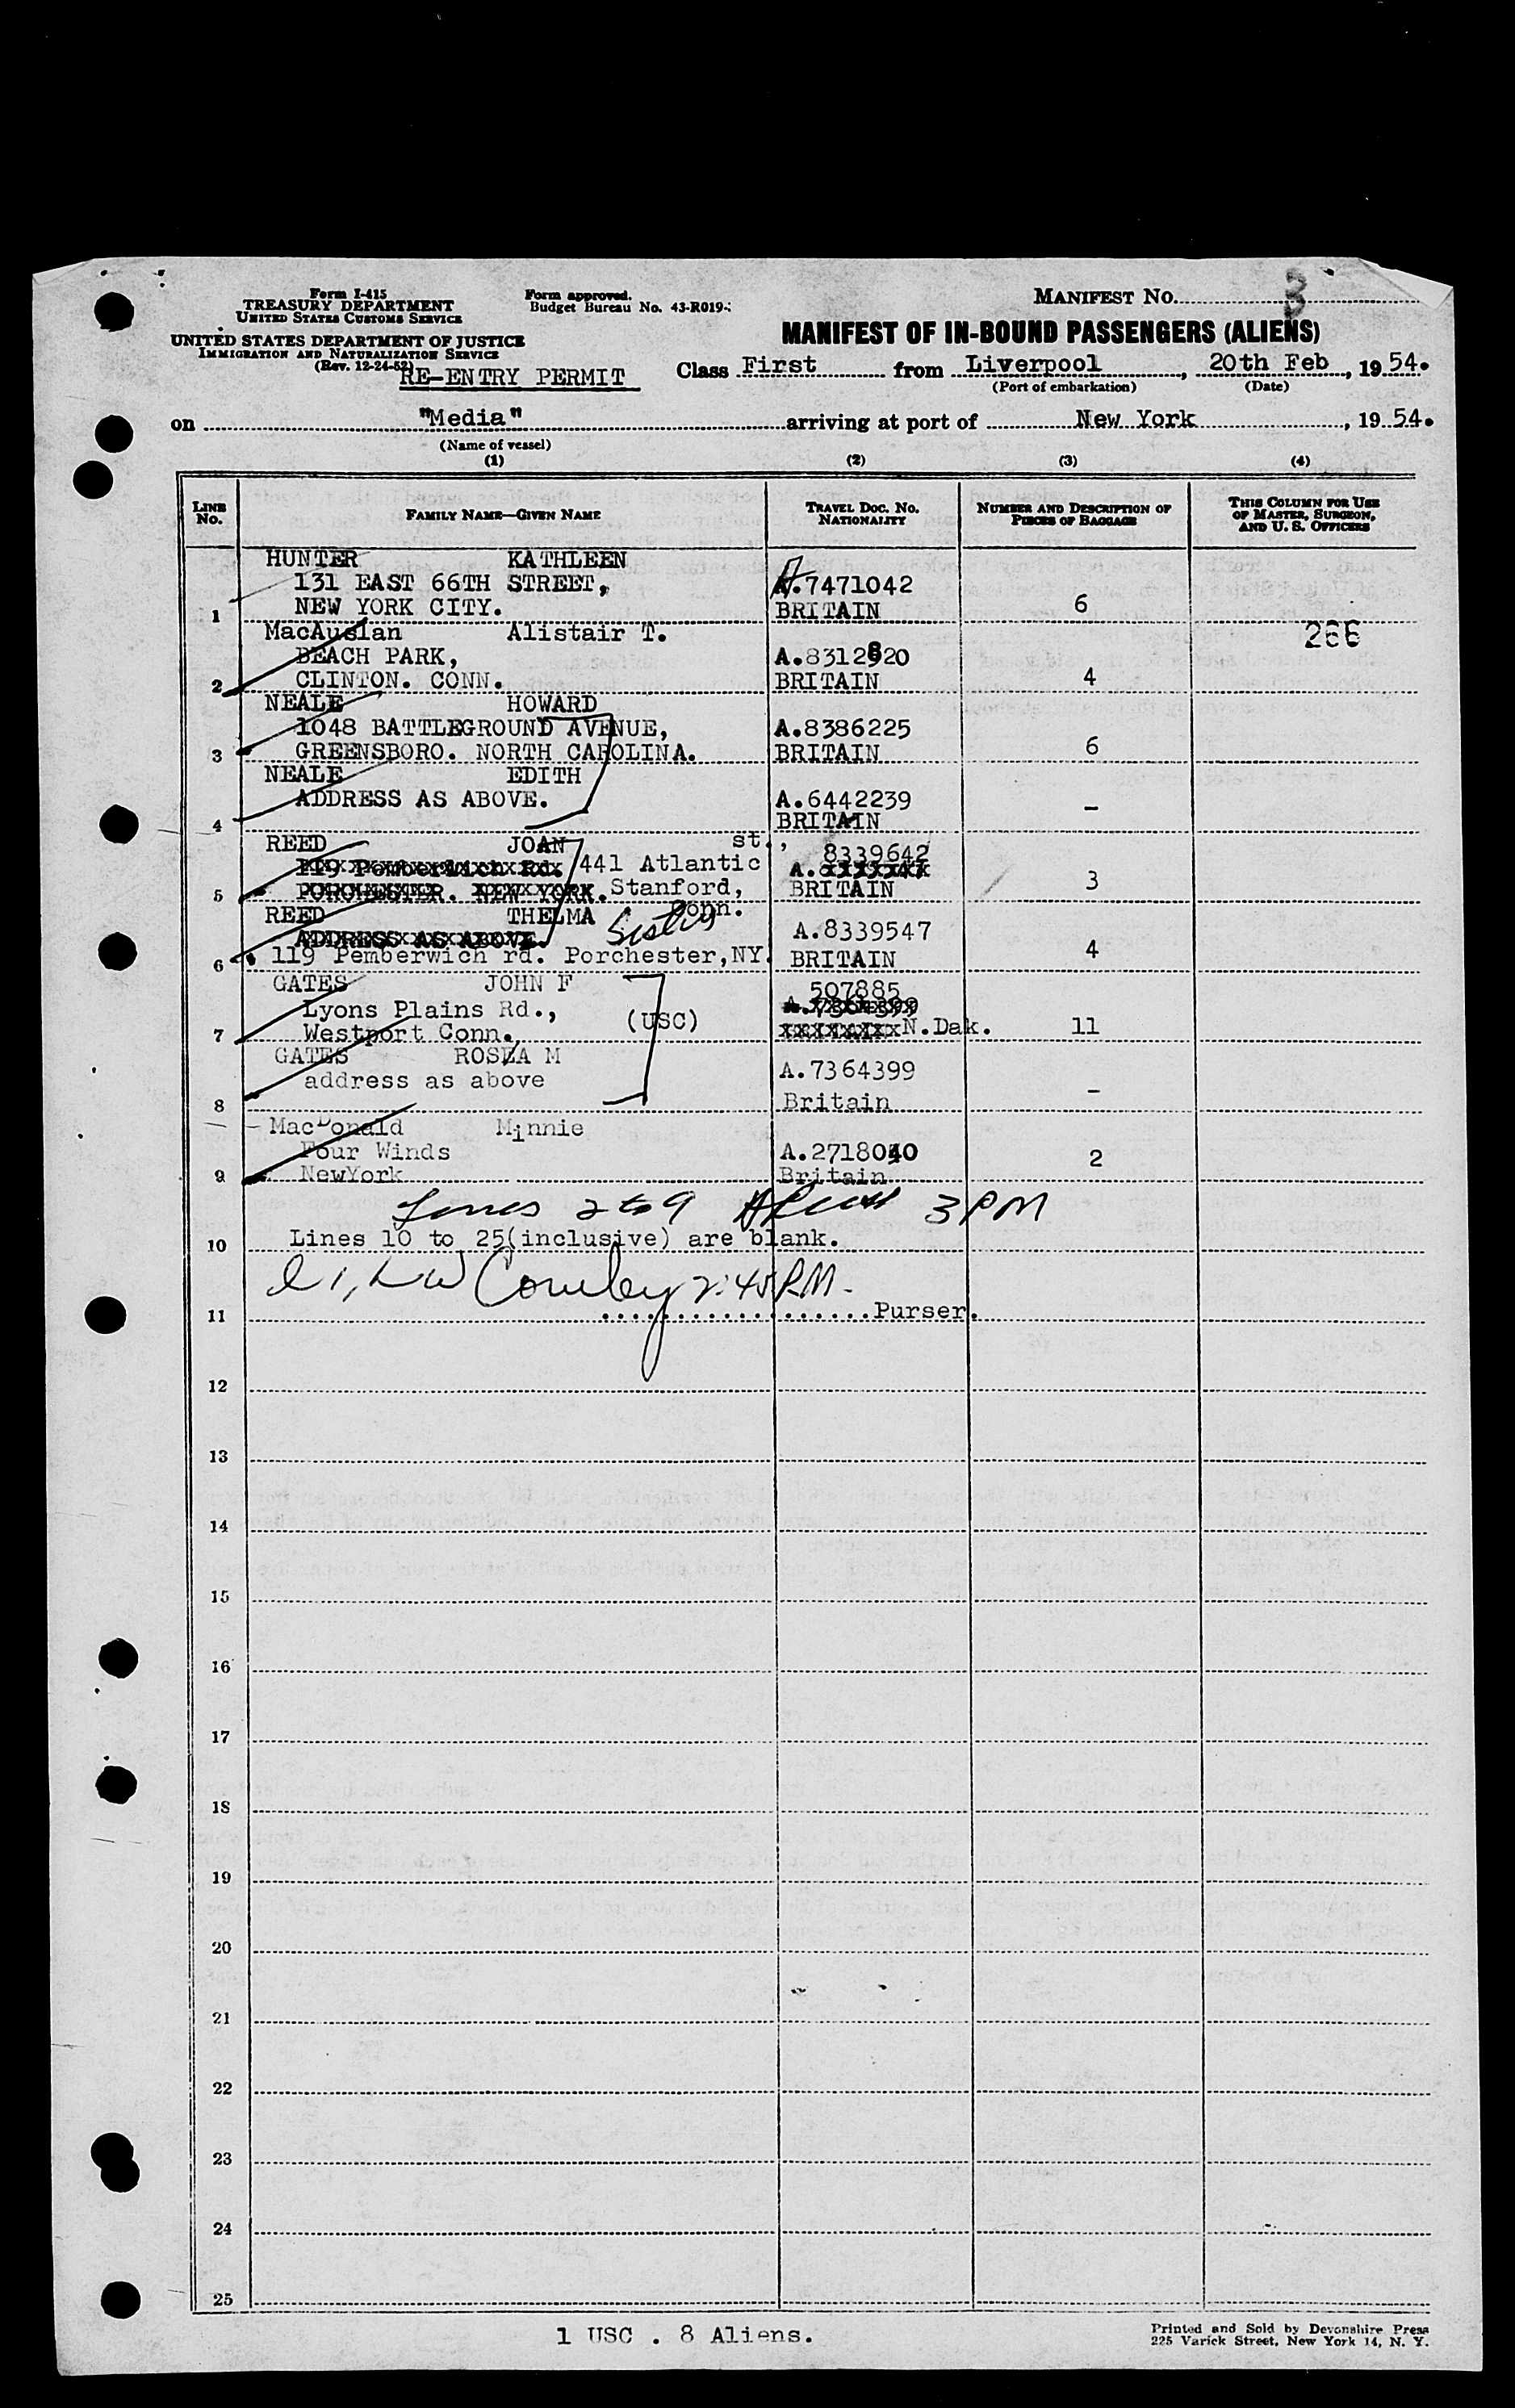 Form I-415
TREASURY DEPARTMENT
UNITED STATES CUSTOMS SERVICE
UNITED STATES DEPARTMENT OF JUSTICE
IMMIGRATION AND NATURALIZATION SERVICE
(Rev. 12-24-52)
RE-ENTRY PERMIT
Form approved.
Budget Bureau No. 43-R019-
MANIFEST No. 3
MANIFEST OF IN-BOUND PASSENGERS (ALIENS)
Class First from Liverpool, 20th Feb, 1954.
(Port of embarkation) (Date)
on "Media" arriving at port of New York, 1954.
(Name of vessel)
(1) (2) (3) (4)
LINE No. FAMILY NAME—GIVEN NAME TRAVEL DOC. NO. NATIONALITY NUMBER AND DESCRIPTION OF PIECES OF BAGGAGE THIS COLUMN FOR USE OF MASTER, SURGEON, AND U. S. OFFICERS
HUNTER KATHLEEN
131 EAST 66TH STREET, A.7471042
1 NEW YORK CITY. BRITAIN 6
MacAuslan Alistair T. 266
BEACH PARK, A.8312820
2 CLINTON. CONN. BRITAIN 4
NEALE HOWARD
1048 BATTLEGROUND AVENUE, A.8386225
3 GREENSBORO. NORTH CAROLINA. BRITAIN 6
NEALE EDITH
ADDRESS AS ABOVE. A.6442239 -
4 BRITAIN
REED JOAN st.,
119 Pemberwich Rd. 441 Atlantic A. 8339642
5 PORCHESTER. NEW YORK. Stanford, BRITAIN 3
REED THELMA Conn.
ADDRESS AS ABOVE. Sister A.8339547
6 119 Pemberwich rd. Porchester,NY. BRITAIN 4
GATES JOHN F 507885
Lyons Plains Rd., (USC) A.7364399
7 Westport Conn. N.Dak. 11
GATES ROSZA M
address as above A.7364399
8 Britain -
MacDonald Minnie
Four Winds A.2718040
9 NewYork Britain 2
Lines 2 to 9 3 PM
10 Lines 10 to 25(inclusive) are blank.
Cowley 2:45 PM.
11 ..................Purser.
12
13
14
15
16
17
18
19
20
21
22
23
24
25
1 USC . 8 Aliens.
Printed and Sold by Devonshire Press
225 Varick Street, New York 14, N. Y.